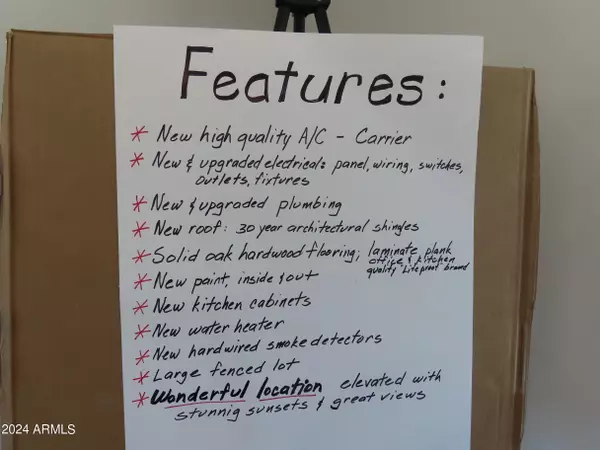 Features:
* New high quality A/C - Carrier
* New & upgraded electrical: panel, wiring, switches,
outlets, fixtures
* New & upgraded plumbing
* New roof: 30 year architectural shingles
* Solid oak hardwood flooring; laminate plank
office & kitchen
quality "Lifeproof brand
* New paint, inside & out
* New kitchen cabinets
* New water heater
* New hardwired smoke detectors
* Large fenced lot
* Wonderful location elevated with
stunnig sunsets & great views
2024 ARMLS